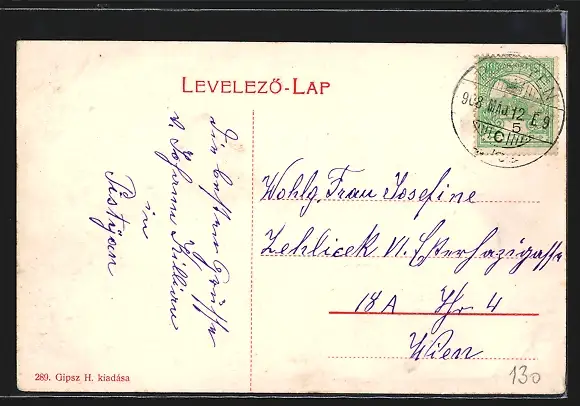 LEVELEZŐ-LAP
908 MÁJ 12 E 9
5
Die besten Grüsse
v. Johanna Killian
in
Pistyan
Wohlg. Frau Josefine
Zehlicek VI. Esterhazigasse
18A Thr 4
Wien
289. Gipsz H. kiadása
130